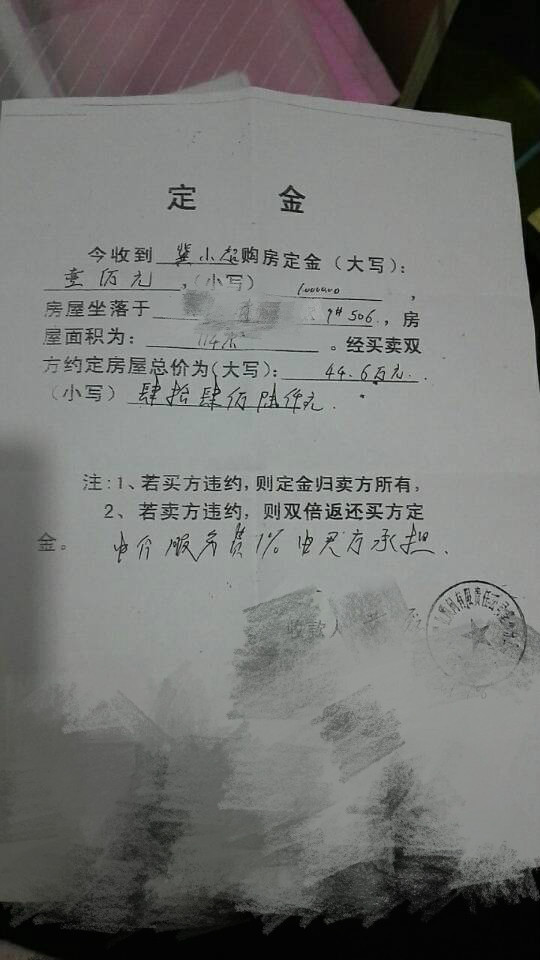 定 金
今收到 冀小超 购房定金（大写）：
壹万元 ,（小写） 10000.00 ,
房屋坐落于 9# 506 , 房
屋面积为： 114 。经买卖双
方约定房屋总价为(大写)： 44.6万元.
（小写） 肆拾肆万陆仟元.
注：1、若买方违约，则定金归卖方所有，
2、若卖方违约，则双倍返还买方定
金。 中介服务费1% 由买方承担.
收款人
有限责任公司